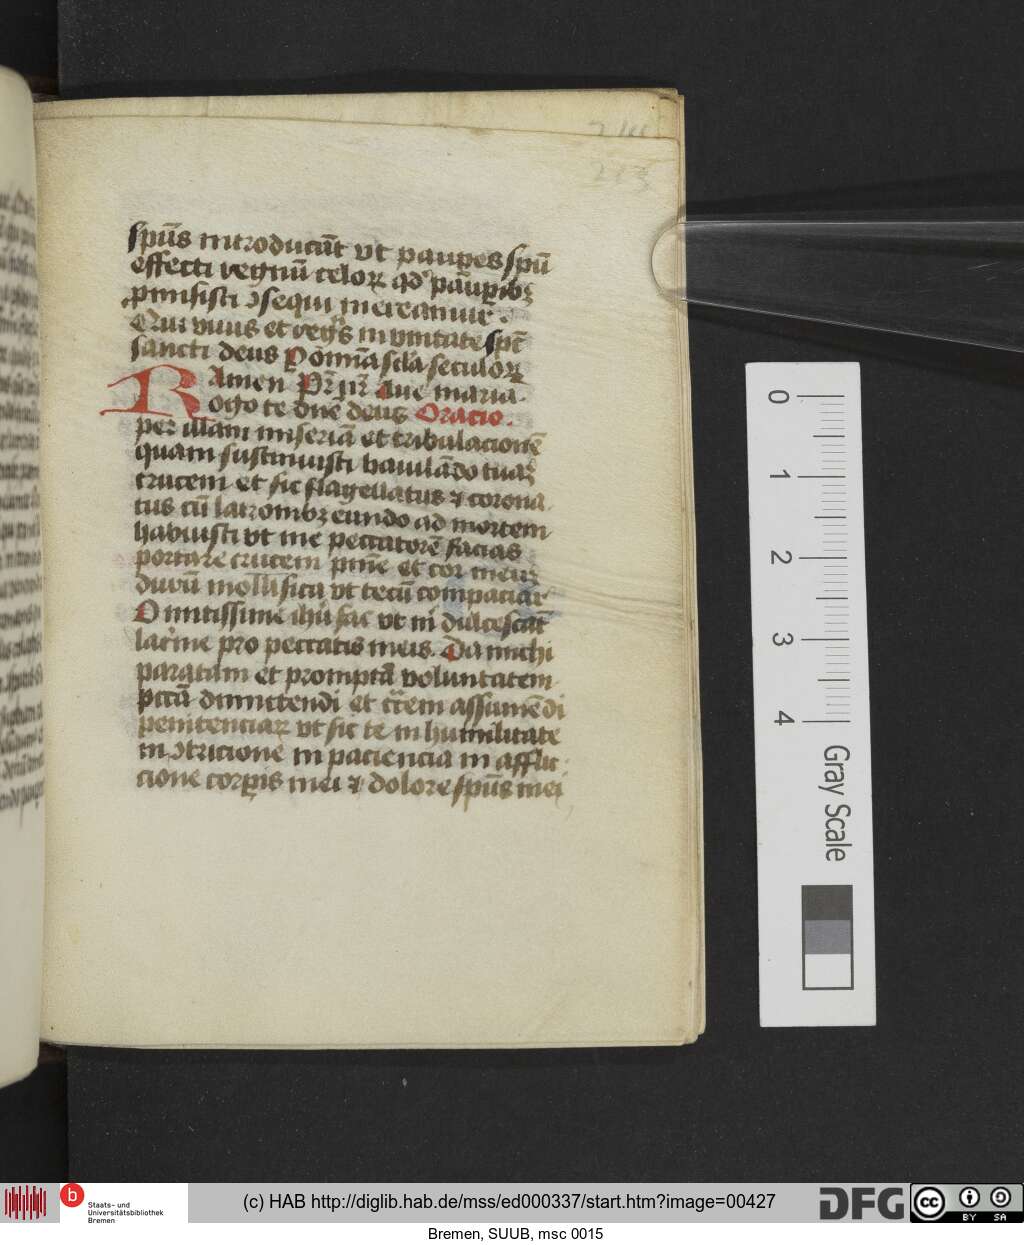 213
spūs introducūt vt paupes spū
effecti regnū celoꝝ qd pauꝑibꝫ
pmisisti ɔsequi mereamur .
Qui viuis et regⁱs in vnitate spc̄
sancti deus ꝑ om̄ia scl̄a seculoꝝ
Amen Pr̄ nr̄ Aue maria.
Rogo te dn̄e deus Oracio.
per illam miseriā et tribulacionē
quam sustinuisti baiulādo tuaꝫ
crucem et sic flagellatus ⁊ corona
tus cū latronibꝫ eundo ad mortem
habuisti vt me peccatorē facias
portare crucem pnīe et cor meuꝫ
durū mollifica vt tecū compaciar
O mitissime ihū fac vt m̄ dulcescāt
lacrime pro peccatis meis. Da michi
paratam et promptā voluntatem
pccā dimittendi et cr̄em assumēdi
penitenciaꝝ vt sic te in humilitate
in ɔtricione in paciencia in afflic
cione corꝑis mei ⁊ dolore spūs mei
0
1
2
3
4
Gray Scale
b
Staats- und
Universitätsbibliothek
Bremen
(c) HAB http://diglib.hab.de/mss/ed000337/start.htm?image=00427
DFG
cc
BY SA
Bremen, SUUB, msc 0015